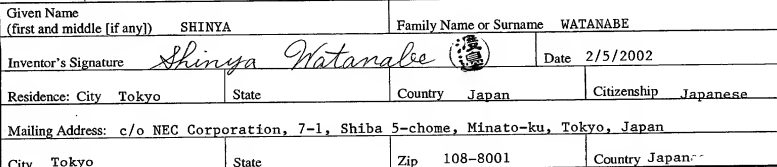 Given Name
(first and middle [if any]) SHINYA Family Name or Surname WATANABE
Inventor's Signature Shinya Watanabe Date 2/5/2002
Residence: City Tokyo State Country Japan Citizenship Japanese
Mailing Address: c/o NEC Corporation, 7-1, Shiba 5-chome, Minato-ku, Tokyo, Japan
City Tokyo State Zip 108-8001 Country Japan